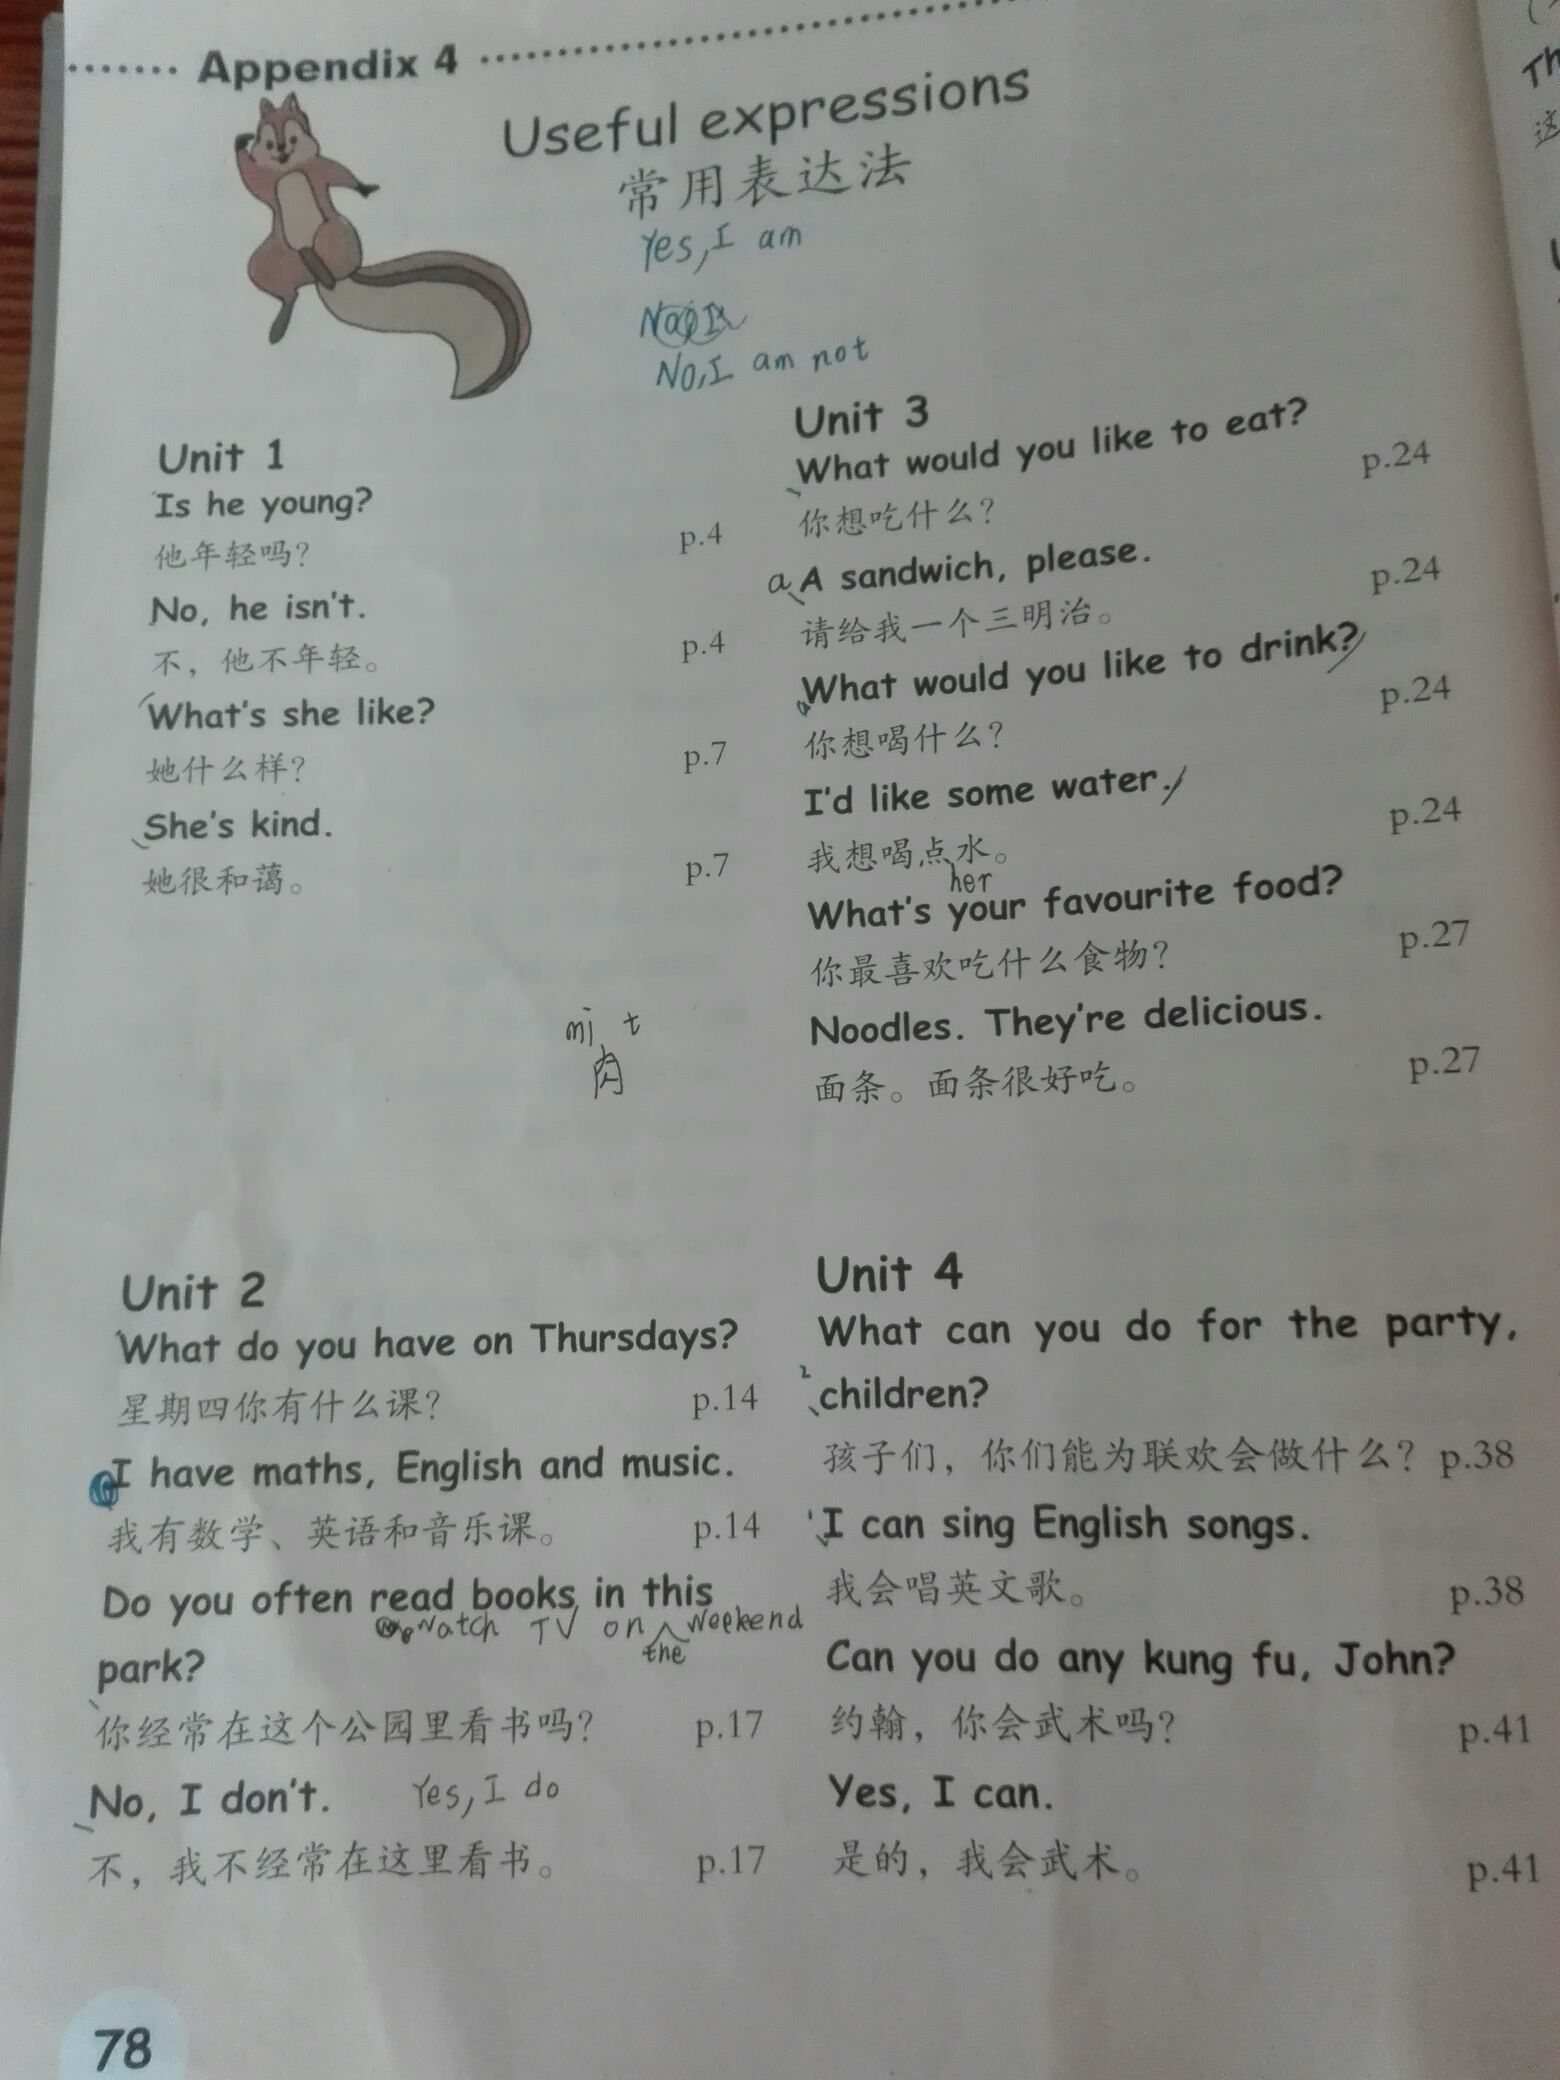 Appendix 4
Useful expressions
常用表达法
Yes, I am
No, I am not
Unit 1
Is he young?
他年轻吗? p.4
No, he isn't.
不，他不年轻。 p.4
What's she like?
她什么样? p.7
She's kind.
她很和蔼。 p.7
mi t
肉
Unit 2
What do you have on Thursdays?
星期四你有什么课? p.14
I have maths, English and music.
我有数学、英语和音乐课。 p.14
Do you often read books in this
watch TV on the weekend
park?
你经常在这个公园里看书吗? p.17
No, I don't. Yes, I do
不，我不经常在这里看书。 p.17
Unit 3
What would you like to eat?
你想吃什么? p.24
a A sandwich, please.
请给我一个三明治。 p.24
What would you like to drink?
你想喝什么? p.24
I'd like some water.
我想喝点水。 p.24
her
What's your favourite food?
你最喜欢吃什么食物? p.27
Noodles. They're delicious.
面条。面条很好吃。 p.27
Unit 4
What can you do for the party,
2 children?
孩子们，你们能为联欢会做什么? p.38
I can sing English songs.
我会唱英文歌。 p.38
Can you do any kung fu, John?
约翰，你会武术吗? p.41
Yes, I can.
是的，我会武术。 p.41
78
Th
这